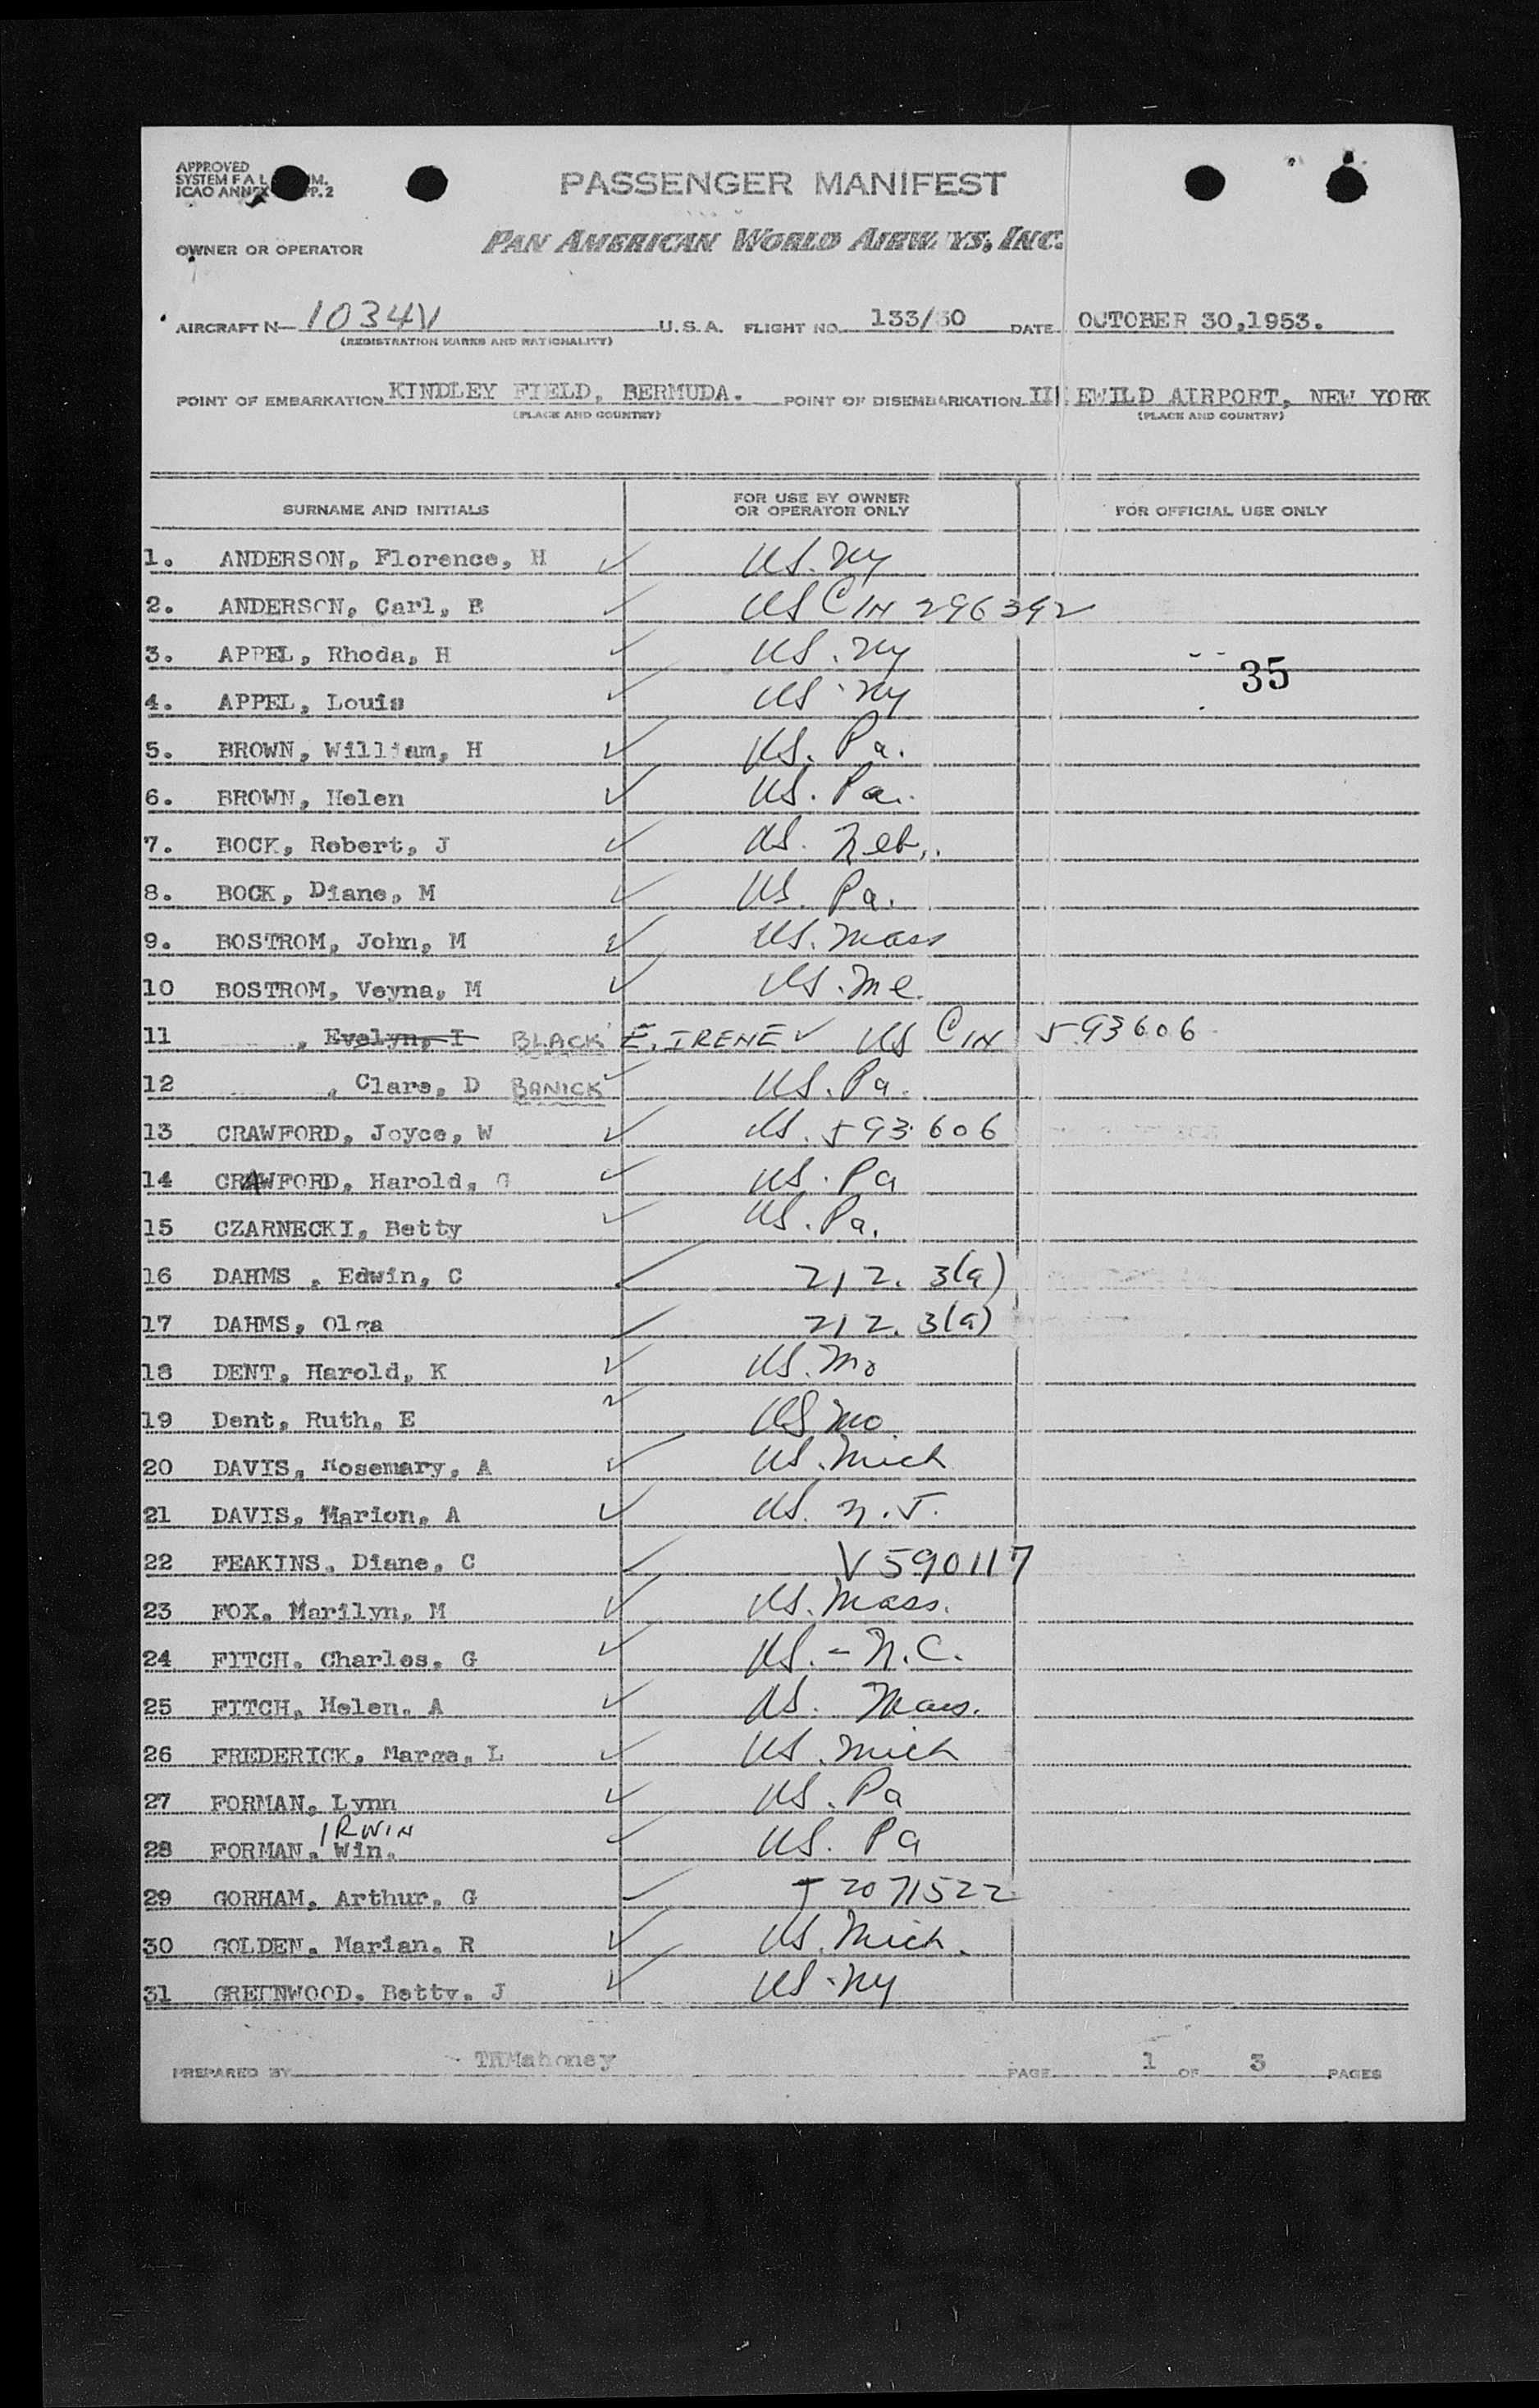 APPROVED
SYSTEM F A L M.
ICAO ANNEX PP. 2
PASSENGER MANIFEST
OWNER OR OPERATOR PAN AMERICAN WORLD AIRW YS, INC.
AIRCRAFT N- 1034V U.S.A. FLIGHT NO. 133/30 DATE OCTOBER 30,1953.
(REGISTRATION MARKS AND NATIONALITY)
POINT OF EMBARKATION KINDLEY FIELD, BERMUDA. POINT OF DISEMBARKATION EWILD AIRPORT, NEW YORK
(PLACE AND COUNTRY) (PLACE AND COUNTRY)
SURNAME AND INITIALS FOR USE BY OWNER OR OPERATOR ONLY FOR OFFICIAL USE ONLY
1. ANDERSON, Florence, H ✓ US. Ny
2. ANDERSON, Carl, E ✓ US C IN 296392
3. APPEL, Rhoda, H ✓ US. Ny
35
4. APPEL, Louis ✓ US. Ny
5. BROWN, William, H ✓ US. Pa.
6. BROWN, Helen ✓ US. Pa.
7. BOCK, Robert, J ✓ US. Neb.
8. BOCK, Diane, M ✓ US. Pa.
9. BOSTROM, John, M ✓ US. Mass
10 BOSTROM, Veyna, M ✓ US. Me.
11 , Evelyn, I BLACK E. IRENE ✓ US C IN 593606
12 , Clare, D BANICK ✓ US. Pa.
13 CRAWFORD, Joyce, W ✓ US. 593606
14 CRAWFORD, Harold, G ✓ US. Pa
15 CZARNECKI, Betty ✓ US. Pa.
16 DAHMS , Edwin, C ✓ 212. 3(a)
17 DAHMS, Olga ✓ 212. 3(a)
18 DENT, Harold, K ✓ US. Mo
19 Dent, Ruth, E ✓ US Mo.
20 DAVIS, Rosemary, A ✓ US. Mich
21 DAVIS, Marion, A ✓ US. N.J.
22 FEAKINS, Diane, C ✓ V590117
23 FOX. Marilyn, M ✓ US. Mass.
24 FITCH, Charles, G ✓ US. - N.C.
25 FITCH, Helen. A ✓ US. Mass.
26 FREDERICK, Marge, L ✓ US. Mich
27 FORMAN, Lynn ✓ US. Pa
IRWIN
28 FORMAN. Win. ✓ US. Pa
29 GORHAM, Arthur, G ✓ T 2071522
30 GOLDEN. Marian. R ✓ US. Mich.
31 GREENWOOD. Betty. J ✓ US. Ny
PREPARED BY TRMahoney PAGE 1 OF 3 PAGES